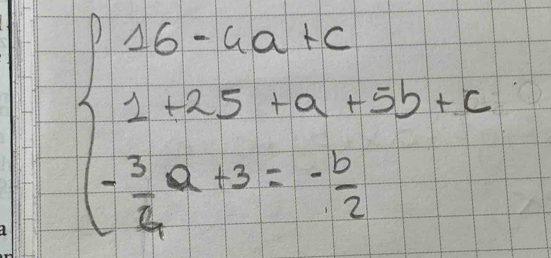 16 - 4a + c
1 + 25 + a + 5b + c
- 3/4 a + 3 = - b/2